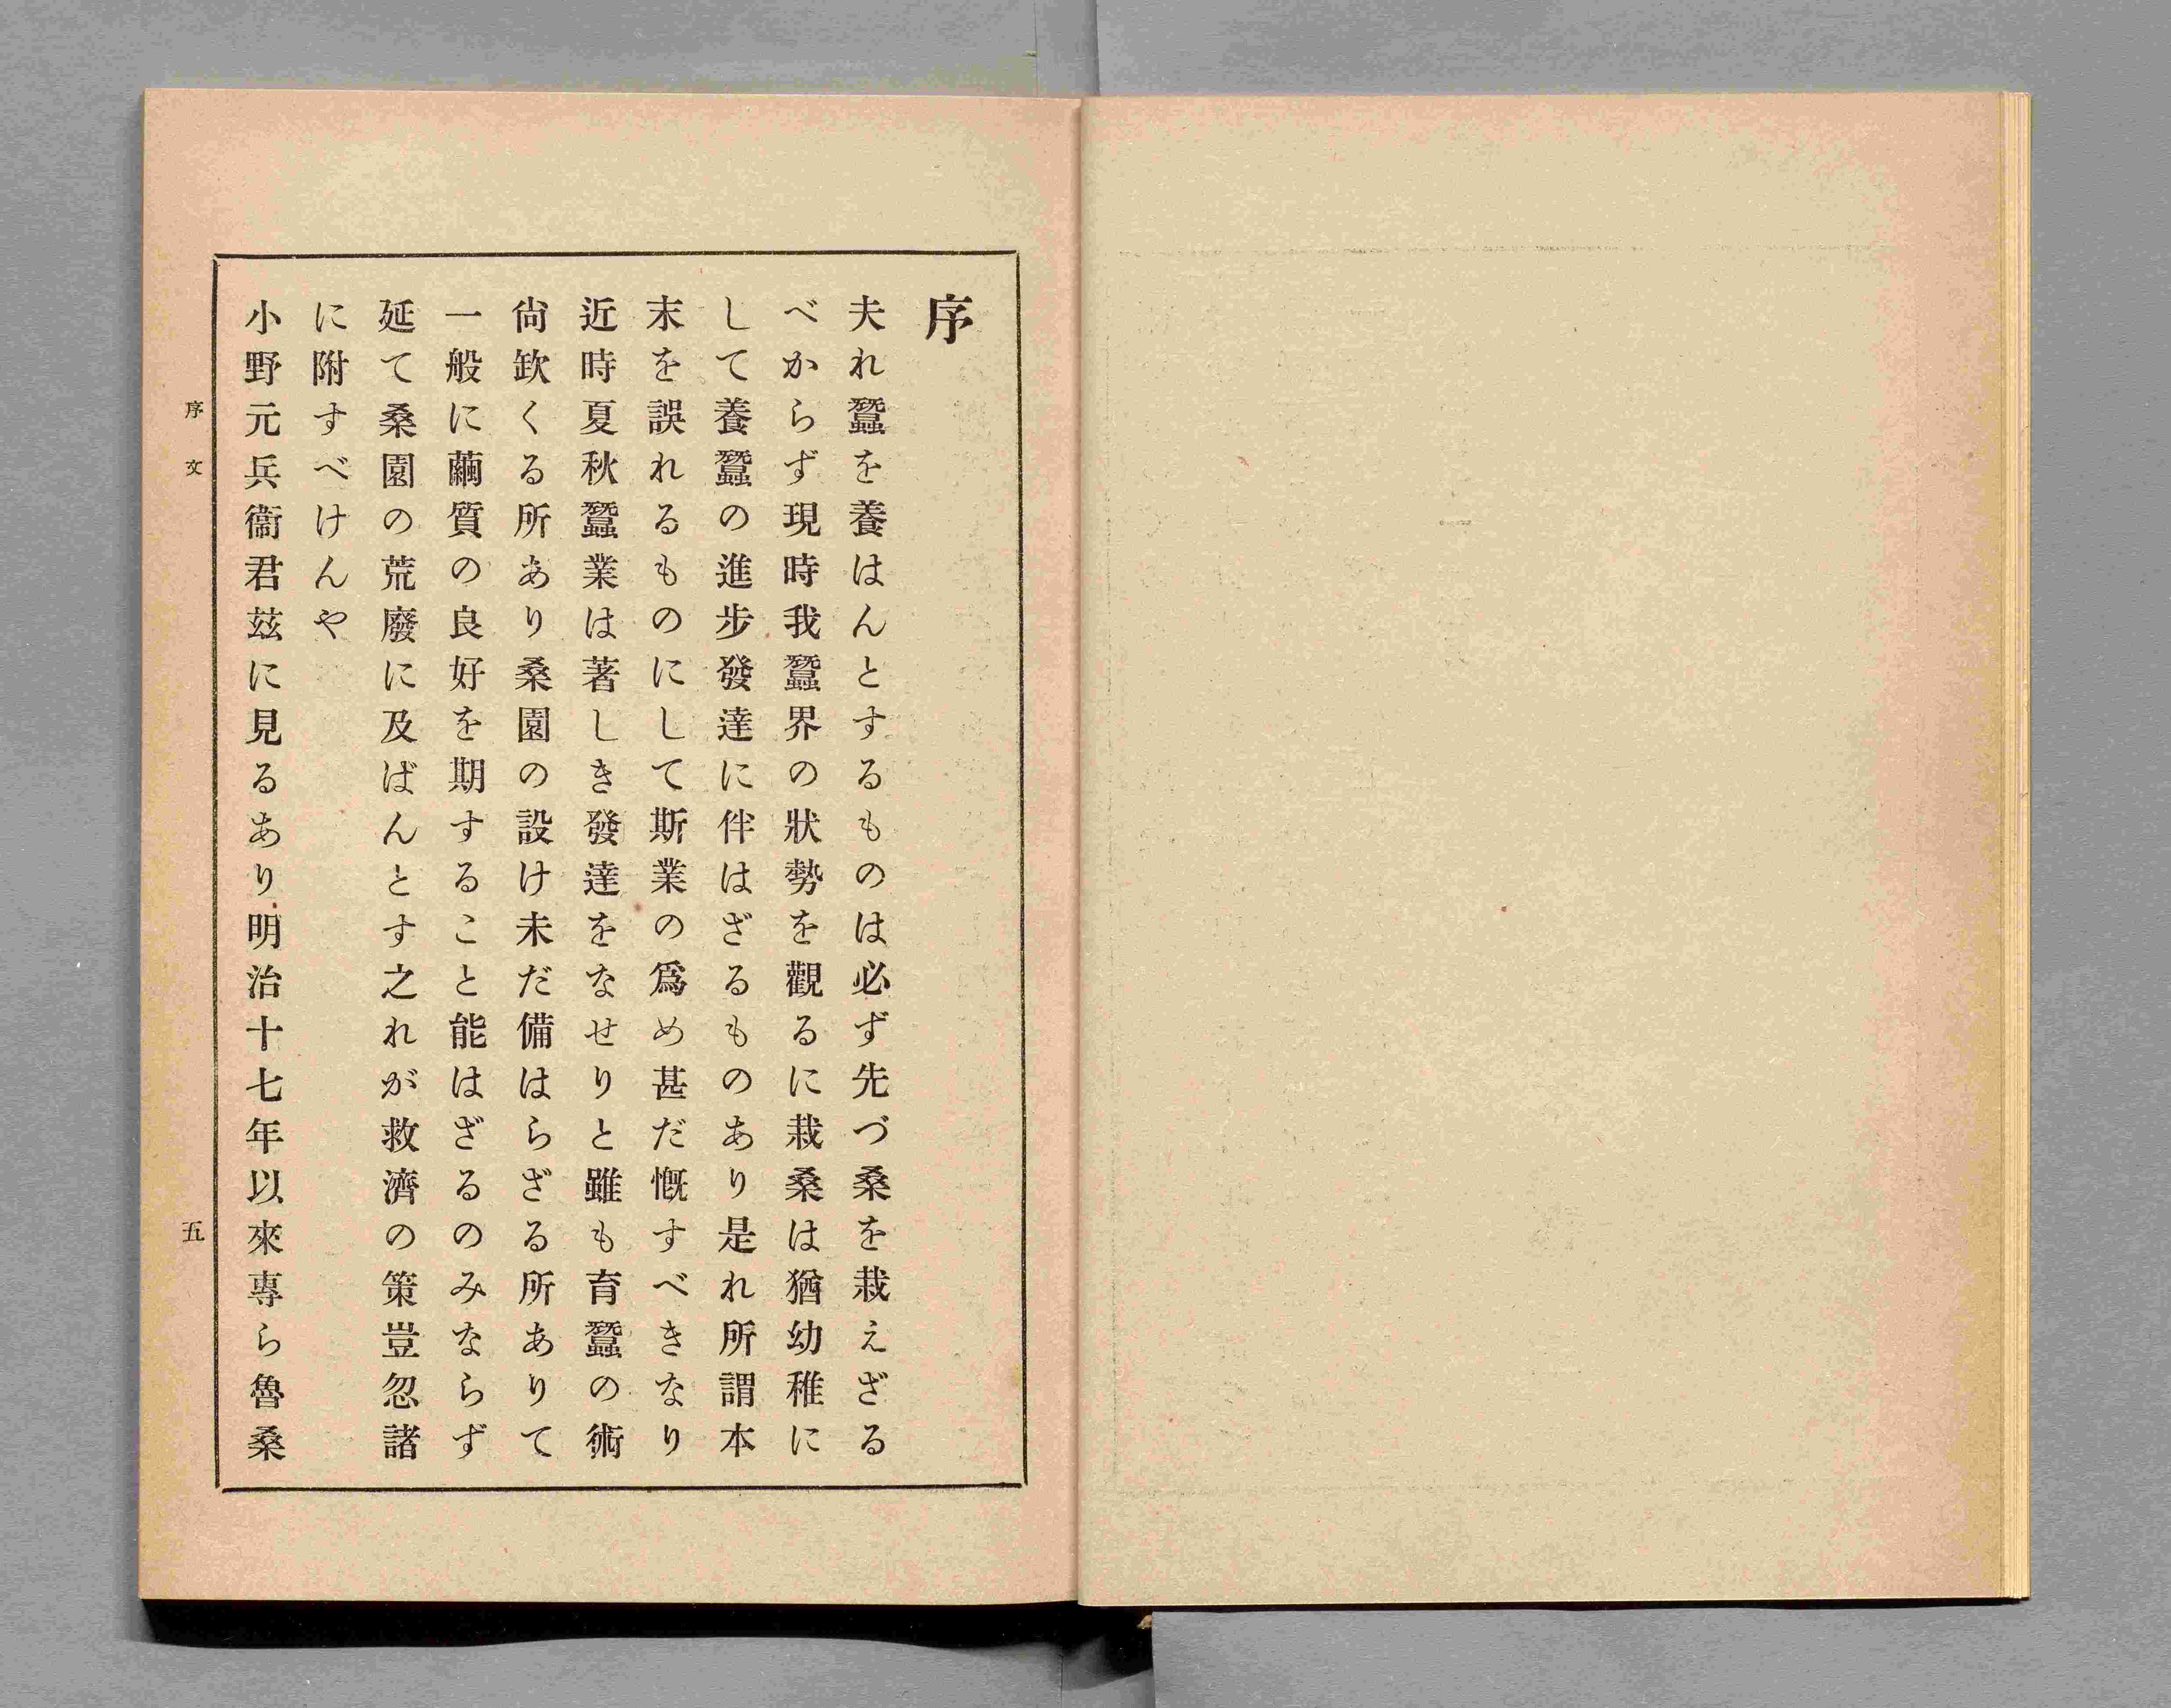 序
夫れ蠶を養はんとするものは必ず先づ桑を栽えざる
べからず現時我蠶界の狀勢を觀るに栽桑は猶幼稚に
して養蠶の進步發達に伴はざるものあり是れ所謂本
末を誤れるものにして斯業の爲め甚だ慨すべきなり
近時夏秋蠶業は著しき發達をなせりと雖も育蠶の術
尙欽くる所あり桑園の設け未だ備はらざる所ありて
一般に繭質の良好を期すること能はざるのみならず
延て桑園の荒廢に及ばんとす之れが救濟の策豈忽諸
に附すべけんや
小野元兵衞君玆に見るあり明治十七年以來專ら魯桑
序文
五